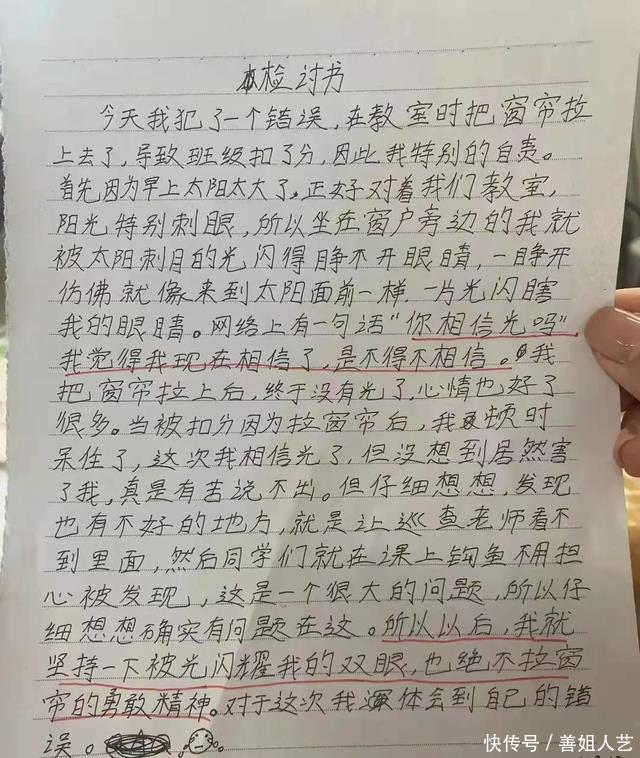 检讨书
今天我犯了一个错误，在教室时把窗帘拉
上去了，导致班级扣了分，因此我特别的自责。
首先因为早上太阳太大了。正好对着我们教室，
阳光特别刺眼，所以坐在窗户旁边的我就
被太阳刺目的光闪得睁不开眼睛，一睁开
仿佛就像来到太阳面前一样，一片光闪瞎
我的眼睛。网络上有一句话“你相信光吗”
我觉得我现在相信了，是不得不相信。我
把窗帘拉上后，终于没有光了，心情也好了
很多。当被扣分因为拉窗帘后，我顿时
呆住了，这次我相信光了，但没想到居然害
了我，真是有苦说不出。但仔细想想，发现
也有不好的地方，就是让巡查老师看不
到里面，然后同学们就在课上钩鱼不用担
心被发现，这是一个很大的问题，所以仔
细想想确实有问题在这。所以以后，我就
坚持一下被光闪耀我的双眼，也绝不拉窗
帘的勇敢精神。对于这次我深体会到自己的错
误。
快传号／善姐人艺